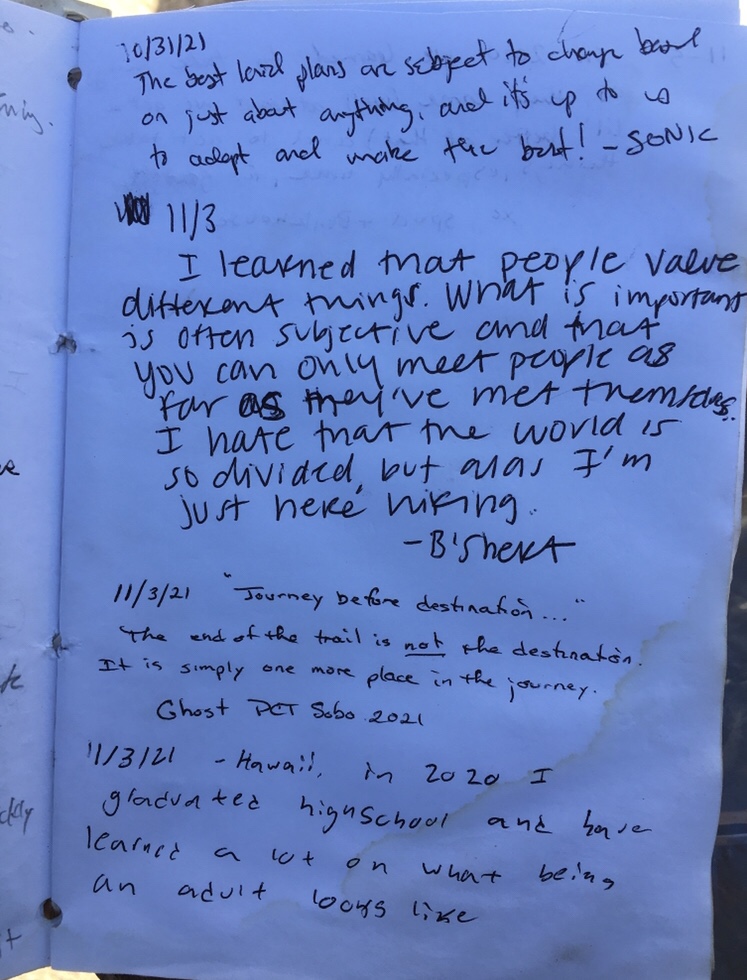 10/31/21
The best laid plans are subject to change based
on just about anything, and it's up to us
to adapt and make the best! - SONIC
11/3
I learned that people value
different things. What is important
is often subjective and that
you can only meet people as
far as they've met themselves.
I hate that the world is
so divided, but alas I'm
just here hiking.
- B'Shert
11/3/21 "Journey before destination..."
The end of the trail is not the destination.
It is simply one more place in the journey.
Ghost PCT Sobo 2021
11/3/21 - Hawaii, in 2020 I
graduated highschool and have
learned a lot on what being
an adult looks like